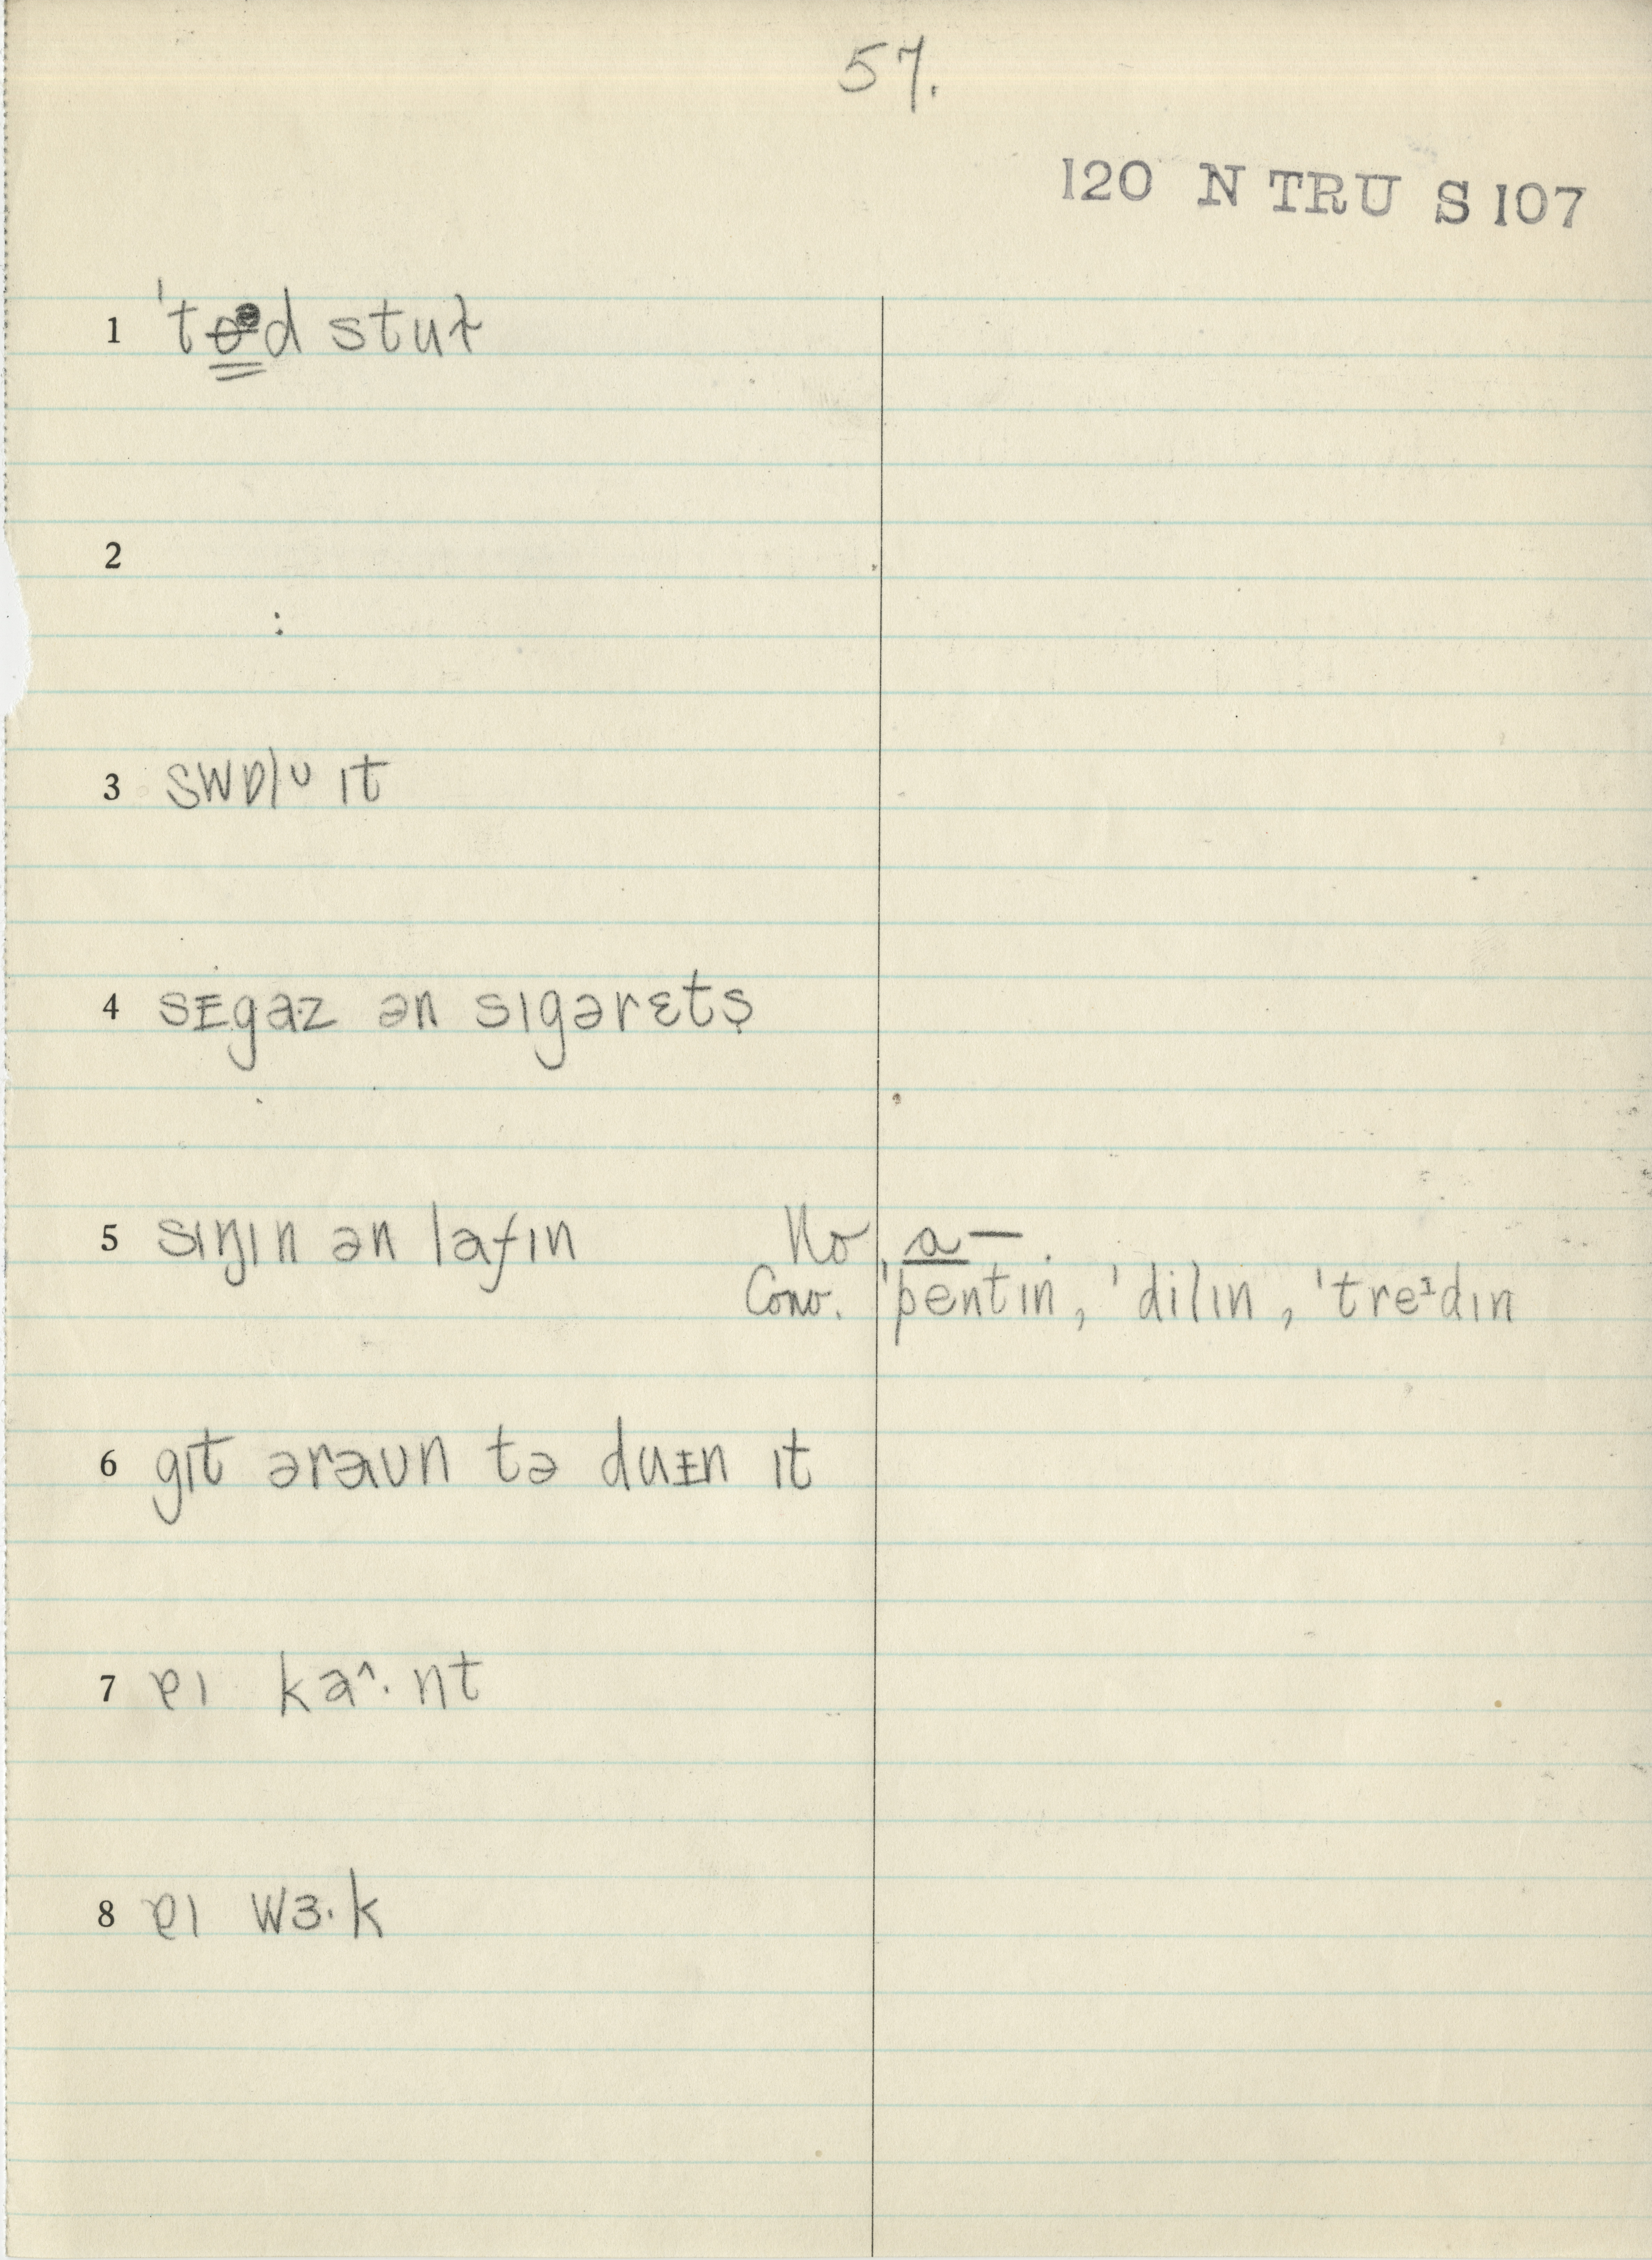 57.
120 N TRU S 107
1 ˈto̶ᵊd stuɫ
2
3 swɒlᴜ ɪt
4 sᵻgaz ən sɪgərɛts̩
5 sɪŋɪn ən lafɪn No a—.
Conv. ˈpentɪn, ˈdilɪn, ˈtreᶦdɪn
6 gɪt əraʊn tə duᵻn ɪt
7 ɐɪ ka^·nt
8 ɐɪ wɜ·k